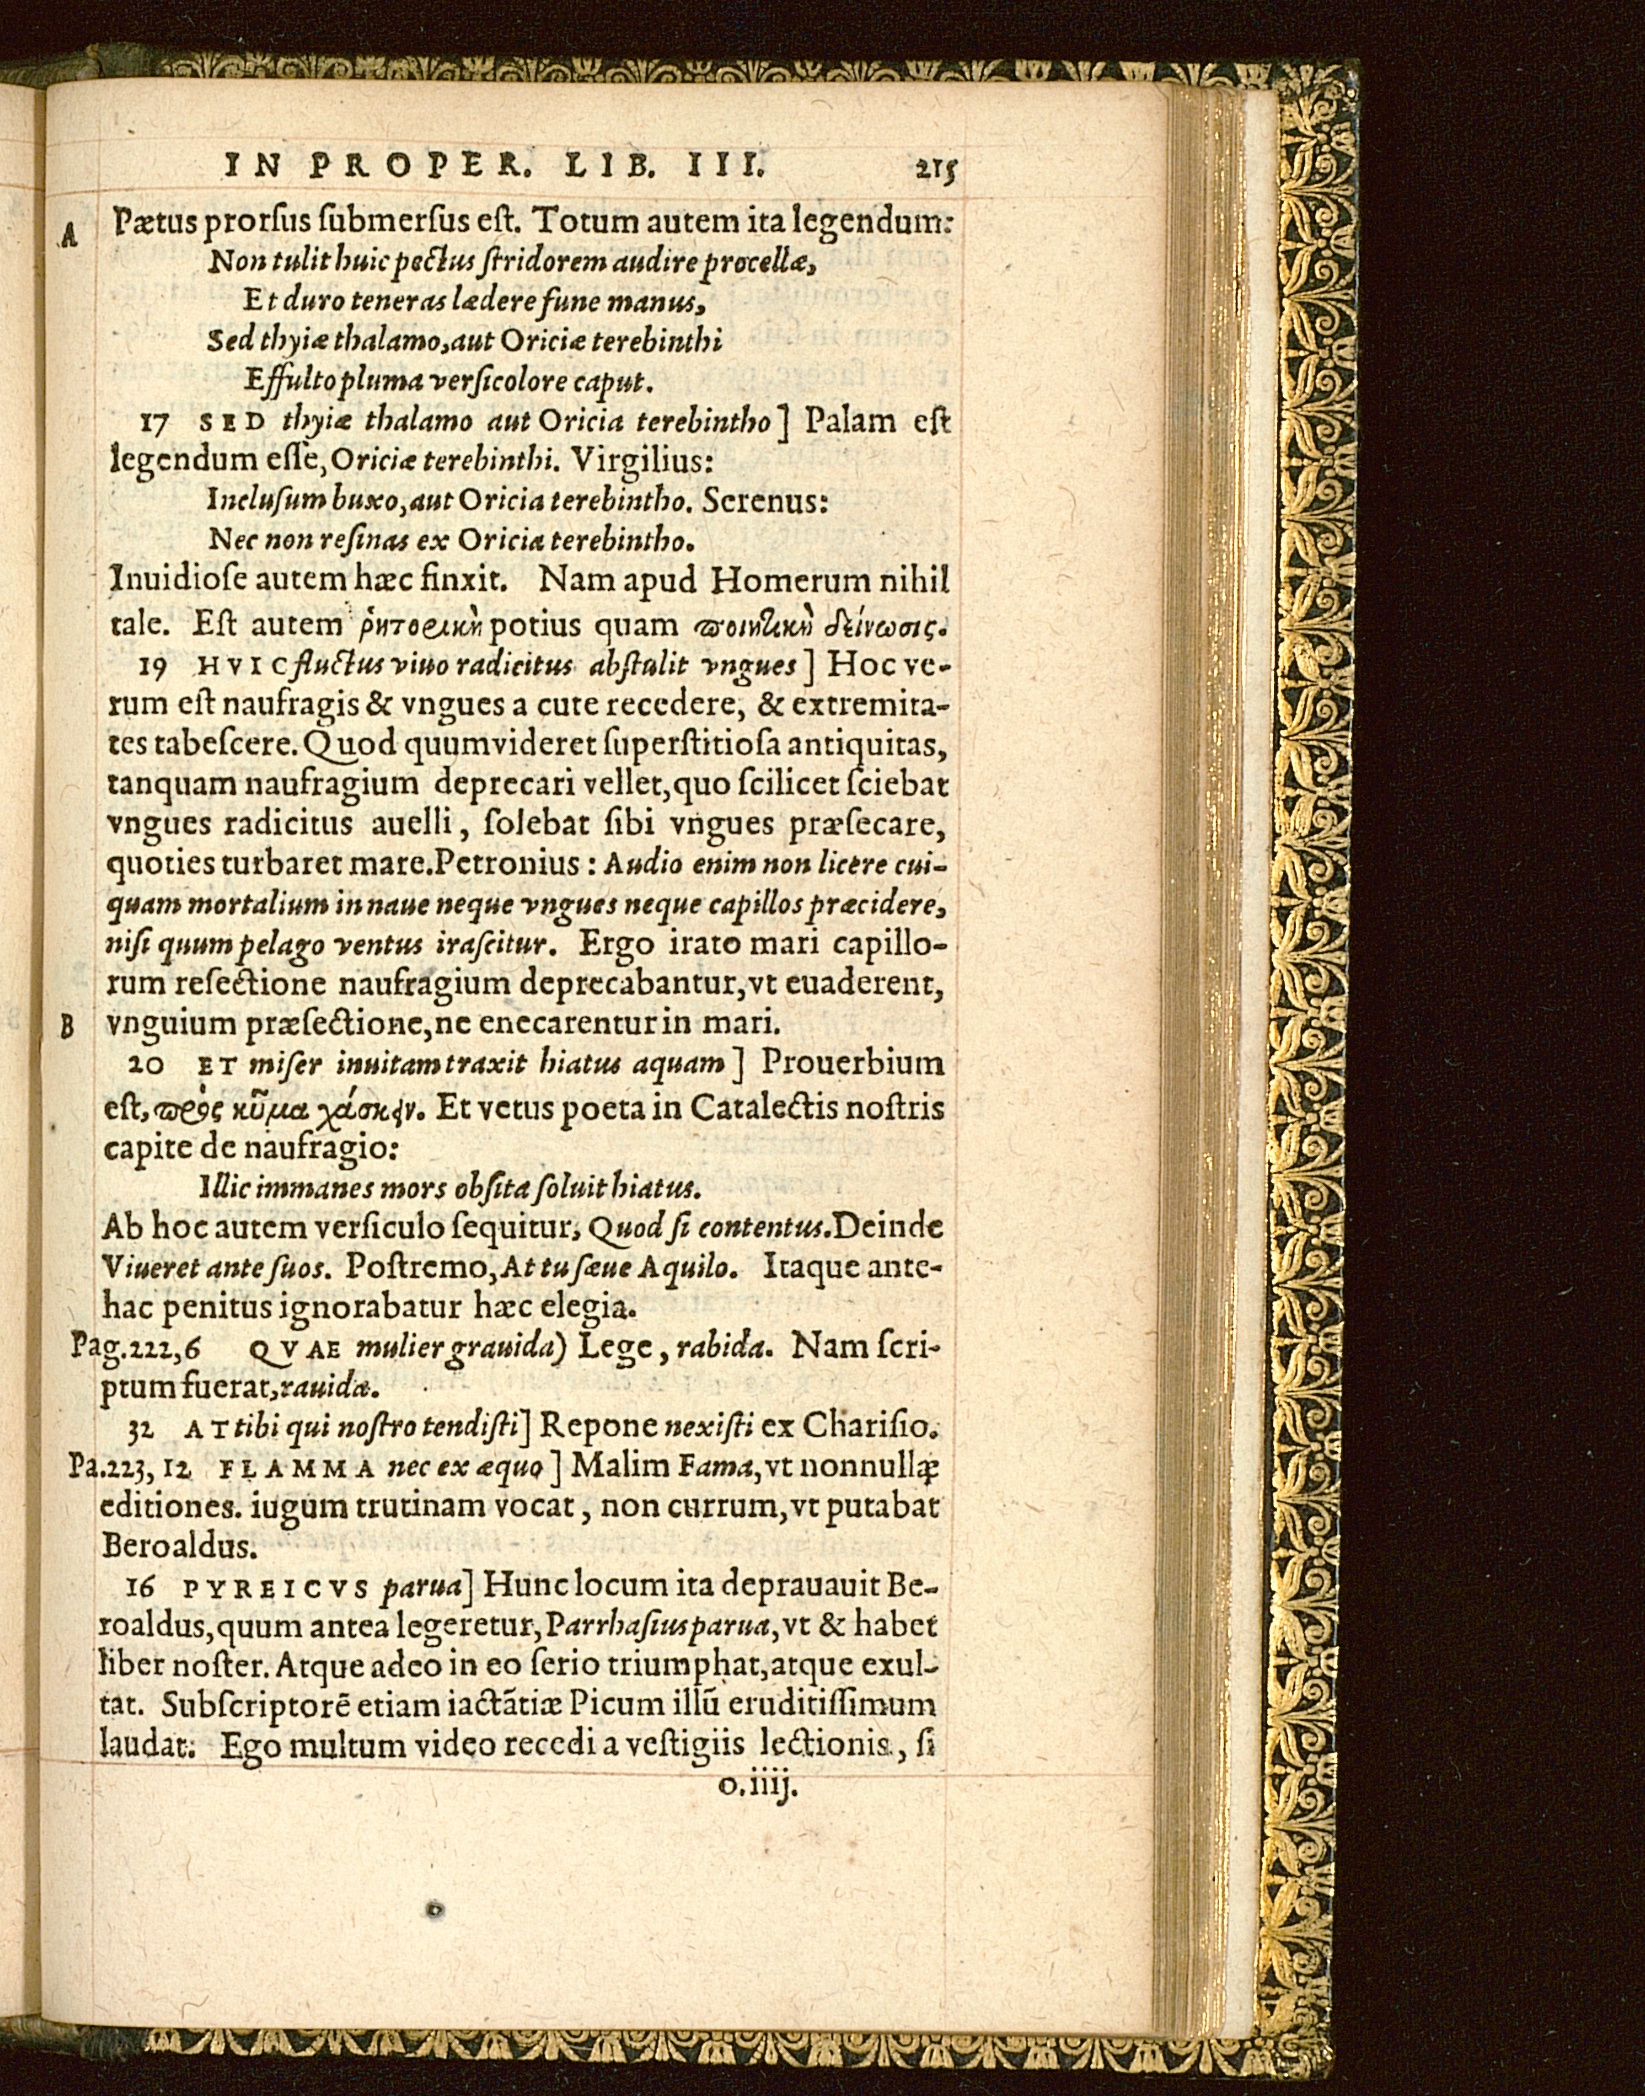 IN PROPER. LIB. III. 215
A Pætus prorſus ſubmerſus eſt. Totum autem ita legendum:
Non tulit huic pectus ſtridorem audire procellæ,
Et duro teneras lædere fune manus,
Sed thyiæ thalamo, aut Oriciæ terebinthi
Effulto pluma verſicolore caput.
17 SED thyiæ thalamo aut Oricia terebintho] Palam eſt
legendum eſſe, Oriciæ terebinthi. Virgilius:
Incluſum buxo, aut Oricia terebintho. Serenus:
Nec non reſinas ex Oricia terebintho.
Inuidioſe autem hæc finxit. Nam apud Homerum nihil
tale. Eſt autem ῥητορικὴ potius quam ποιητικὴ δείνωσις.
19 HVIC fluctus viuo radicitus abſtulit vngues] Hoc ve-
rum eſt naufragis & vngues a cute recedere, & extremita-
tes tabeſcere. Quod quum videret ſuperſtitioſa antiquitas,
tanquam naufragium deprecari vellet, quo ſcilicet ſciebat
vngues radicitus auelli, ſolebat ſibi vngues præſecare,
quoties turbaret mare. Petronius: Audio enim non licere cui-
quam mortalium in naue neque vngues neque capillos præcidere,
niſi quum pelago ventus iraſcitur. Ergo irato mari capillo-
rum reſectione naufragium deprecabantur, vt euaderent,
B vnguium præſectione, ne enecarentur in mari.
20 ET miſer inuitam traxit hiatus aquam] Prouerbium
eſt, πρὸς κῦμα χάσκειν. Et vetus poeta in Catalectis noſtris
capite de naufragio:
Illic immanes mors obſita ſoluit hiatus.
Ab hoc autem verſiculo ſequitur, Quod ſi contentus. Deinde
Viueret ante ſuos. Poſtremo, At tu ſæue Aquilo. Itaque ante-
hac penitus ignorabatur hæc elegia.
Pag.222,6 QVAE mulier grauida) Lege, rabida. Nam ſcri-
ptum fuerat, rauida.
32 AT tibi qui noſtro tendiſti] Repone nexiſti ex Chariſio.
Pa.223, 12 FLAMMA nec ex æquo] Malim Fama, vt nonnullę
editiones. iugum trutinam vocat, non currum, vt putabat
Beroaldus.
16 PYREICVS parua] Hunc locum ita deprauauit Be-
roaldus, quum antea legeretur, Parrhaſius parua, vt & habet
liber noſter. Atque adeo in eo ſerio triumphat, atque exul-
tat. Subſcriptorē etiam iactātiæ Picum illū eruditiſſimum
laudat. Ego multum video recedi a veſtigiis lectionis, ſi
o.iiij.